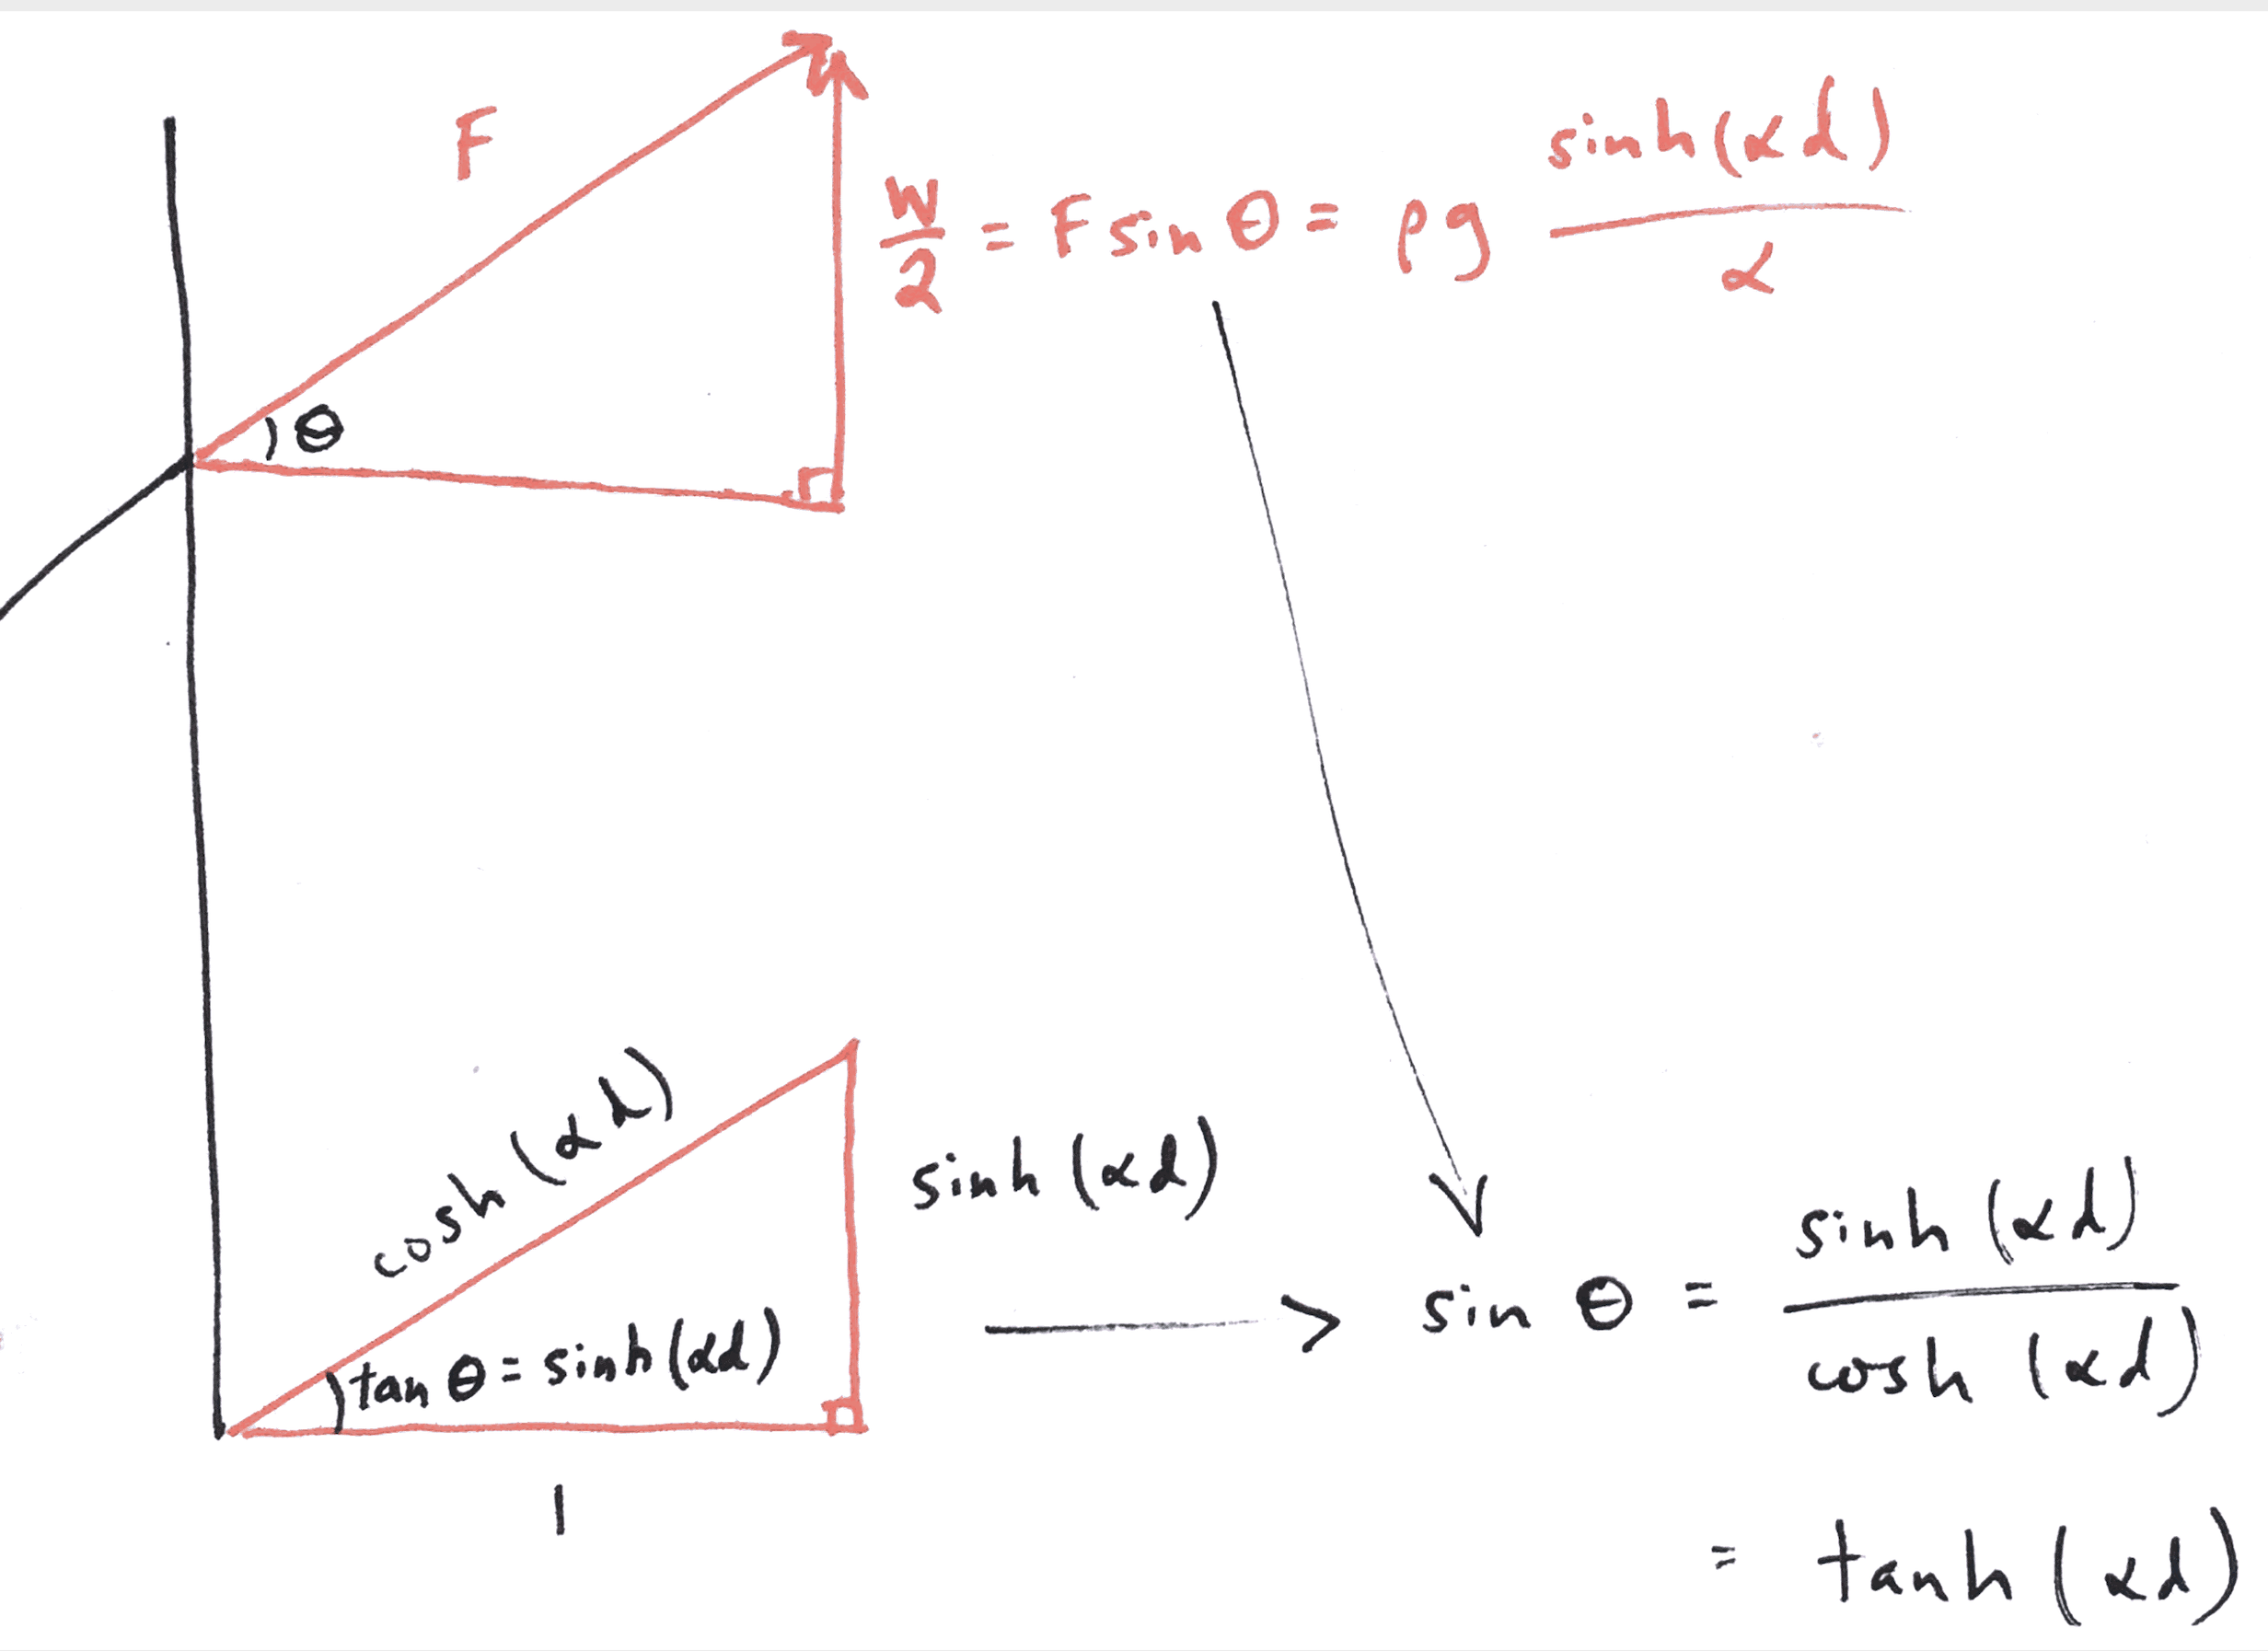 F
W/2 = F sin θ = ρg sinh(αd)/α
θ
cosh(αd)
sinh(αd)
tan θ = sinh(αd)
sin θ = sinh(αd)/cosh(αd)
1
= tanh(αd)